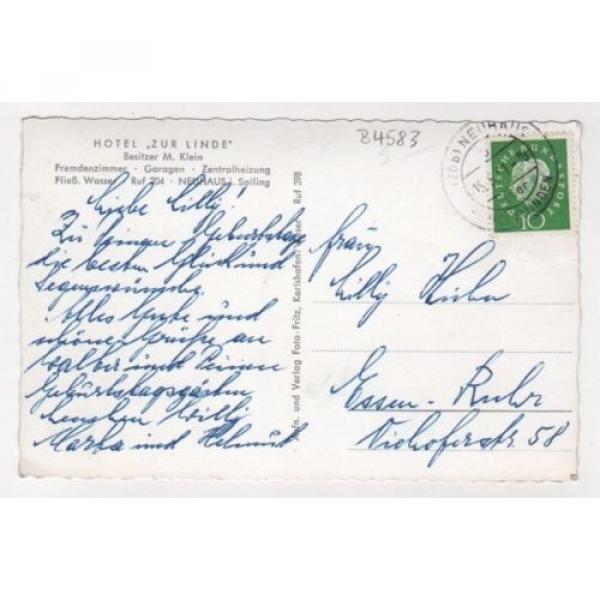 HOTEL „ZUR LINDE"
Besitzer M. Klein
Fremdenzimmer · Garagen · Zentralheizung
Fließ. Wasser · Ruf 204 · NEUHAUS i. Solling
B4583
(20b) NEUHAUS
DEUTSCHE BUNDESPOST
10
Liebe Lilly!
Zu Deinem Geburtstage
die besten Glück und
Segenswünsche.
Alles Gute und
schöne Grüße an
Walter und Deinen
Geburtstagsgästen
Willy
Marta und Helmut
Aufn. und Verlag Foto-Fritz, Karlshafen/Weser Ruf 398
Frau
Lilly
Essen-Ruhr
58